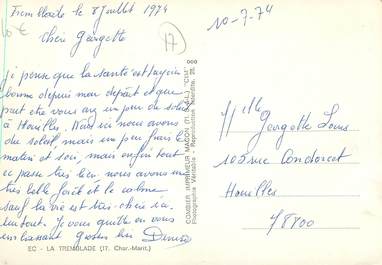 La Tremblade le 8 juillet 1974
10-7-74
Chère Georgette
17
je pense que la santé est toujours
bonne depuis mon départ et que
peut être vous avez un peu de soleil
à Houilles. Nous ici nous avons
du soleil, mais un peu frais le
matin et soir, mais enfin tout
ce passe très bien. nous avons une
très belle forêt et le calme
sauf la vie est très chère ici
surtout. Je vous quitte en vous
embrassant Grosses bises Denise
Mlle
Georgette Louis
102 rue Condorcet
Houilles
78800
COMBIER IMPRIMEUR MACON (71. S.-&-L.) "CIM"
Photographie Véritable - Reproduction interdite.
EC - LA TREMBLADE (17. Char.-Marit.)